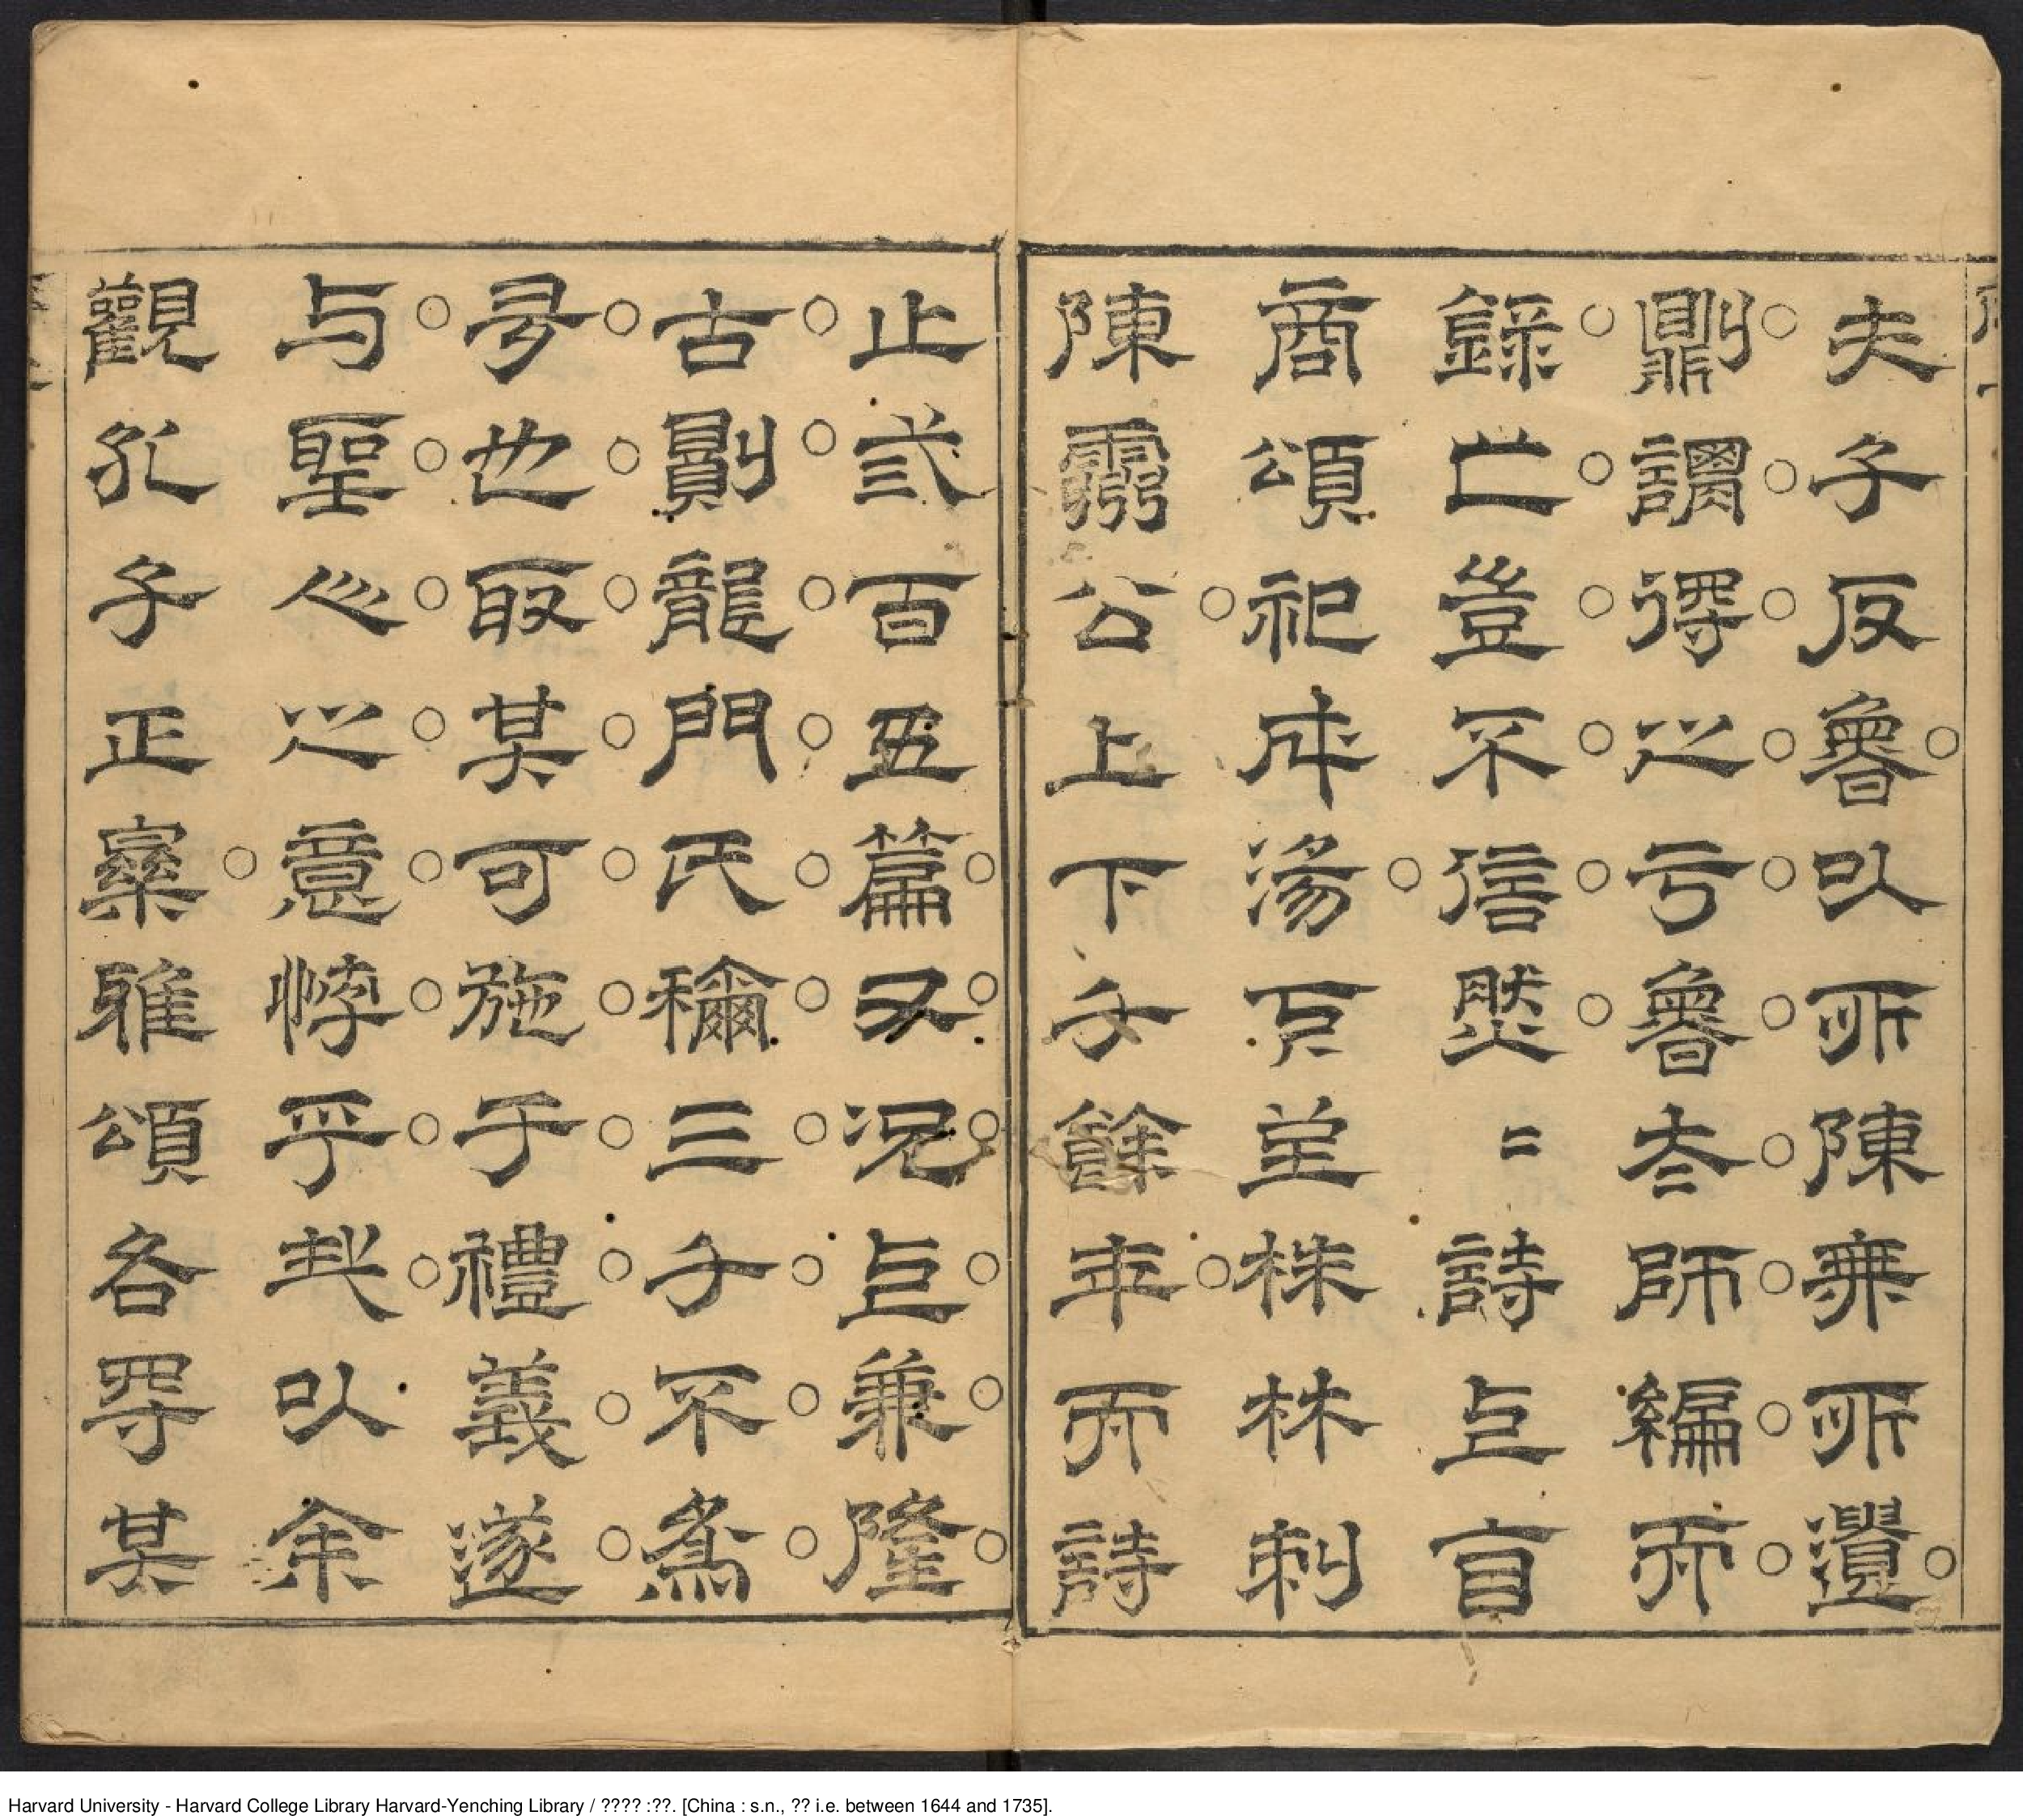 夫子反魯以所陳無所遺
則謂得之于魯太師編而
錄亡豈不信然=詩上盲
商頌祀成湯下至株林刺
陳靈公上下千餘年而詩
止三百五篇又況上兼隆
古則龍門氏稱三千不為
多也取其可施于禮義遂
与聖心之意悖乎哉以余
觀孔子正樂雅頌各得其
Harvard University - Harvard College Library Harvard-Yenching Library / ???? :??. [China : s.n., ?? i.e. between 1644 and 1735].